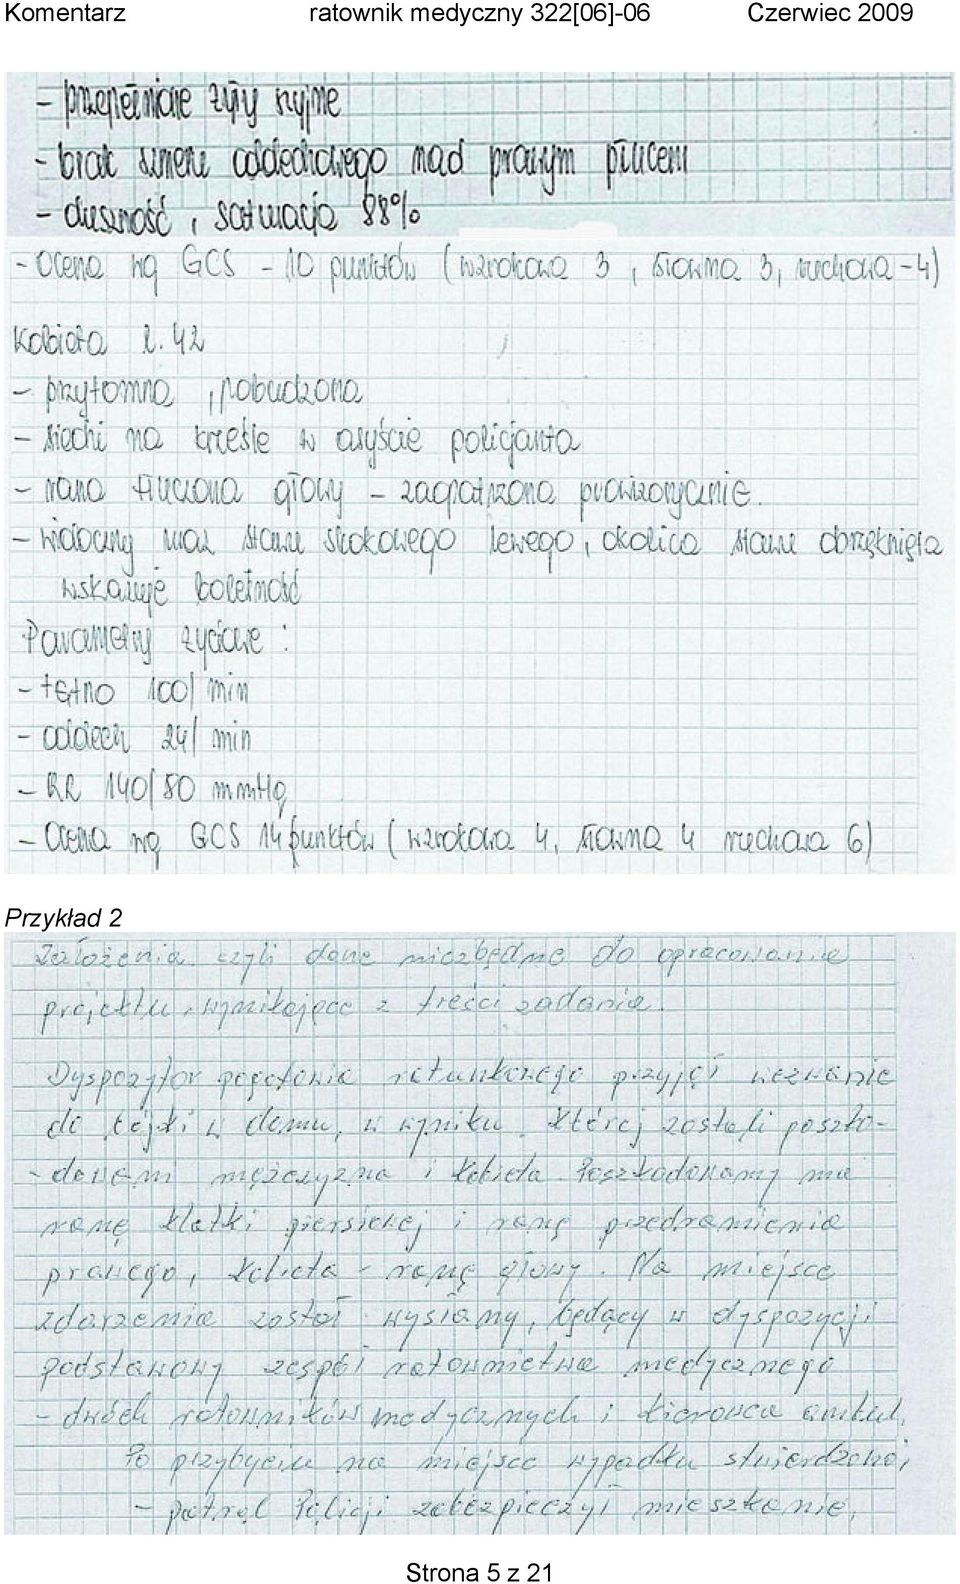 Komentarz ratownik medyczny 322[06]-06 Czerwiec 2009
- przepełnione żyły szyjne
- brak szmeru oddechowego nad prawym płucem
- duszność, saturacja 88%
- Ocena wg GCS - 10 punktów (wzrokowa 3, słowna 3, ruchowa-4)
Kobieta l. 42
- przytomna, pobudzona
- siedzi na krześle w asyście policjanta
- rana tłuczona głowy - zaopatrzona prowizorycznie.
- widoczny uraz stawu skokowego lewego, okolica stawu obrzęknięta
wskazuje bolesność
Parametry życiowe:
- tętno 100/min
- oddech 24/min
- RR 140/80 mmHg
- Ocena wg GCS 14 punktów (wzrokowa 4, słowna 4 ruchowa 6)
Przykład 2
Założenia czyli dane niezbędne do opracowania
projektu, wynikające z treści zadania.
Dyspozytor pogotowia ratunkowego przyjął wezwanie
do bójki w domu, w wyniku której zostali poszko-
-dowani mężczyzna i kobieta. Poszkodowany ma
ranę klatki piersiowej i ranę przedramienia
prawego, kobieta - ranę głowy. Na miejsce
zdarzenia został wysłany, będący w dyspozycji
podstawowy zespół ratownictwa medycznego
- dwóch ratowników medycznych i kierowca ambul.
Po przybyciu na miejsce wypadku stwierdzono,
- patrol Policji zabezpieczył mieszkanie,
Strona 5 z 21